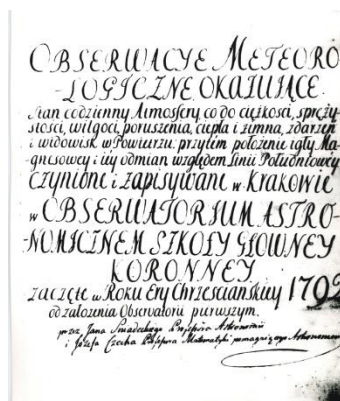 OBSERWACYE METEORO
-LOGICZNE OKAZUIĄCE
Stan codzienny Atmosfery co do ciężkości, spręży-
stości, wilgoci, poruszenia, ciepła i zimna, zdarzeń
i widowisk w Powietrzu: przytem położenie igły Ma-
gnesowey i iey odmian względem Linii Południowey
CZYNIONE i ZAPISYWANE w KRAKOWIE
w OBSERWATORIUM ASTRO-
-NOMICZNEM SZKOŁY GŁOWNEY
KORONNEY.
zaczęte w Roku Ery Chrześciańskiey 1792
od założenia Obserwatorii pierwszym.
przez Jana Śniadeckiego Professora Astronomii
i Józefa Czecha Professora Matematyki pomagaiącego Astronomowi